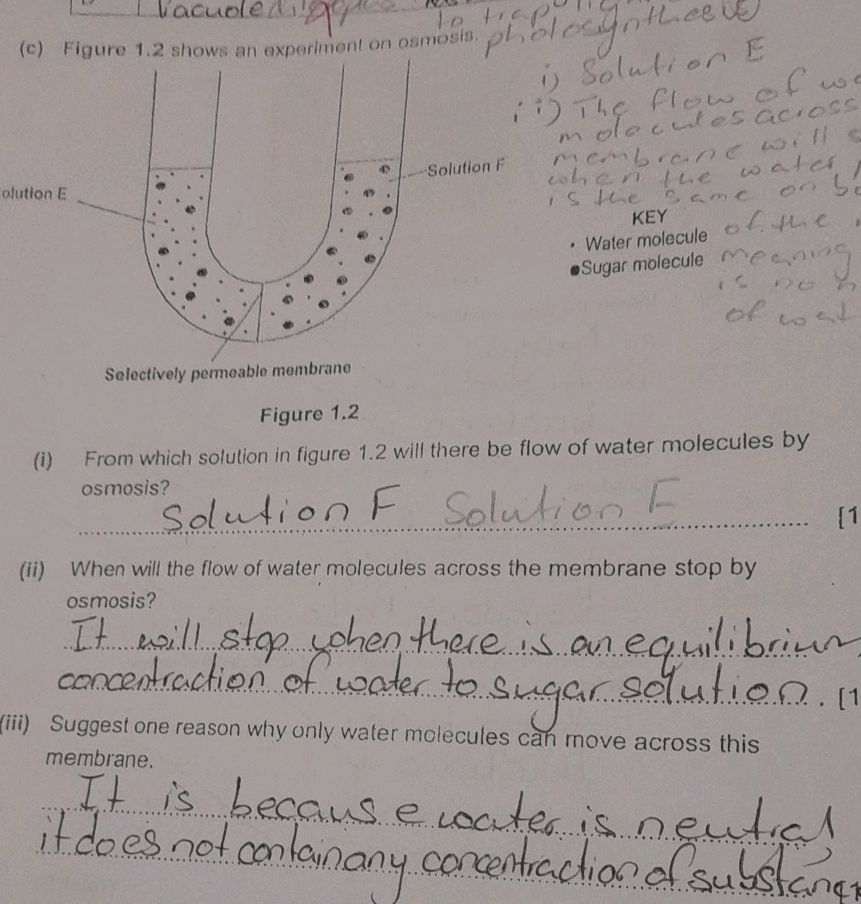 Vacuole
to trap
photosynthesis
(c) Figure 1.2 shows an experiment on osmosis.
i) Solution E
ii) The flow of
molecules across
membrane will
when the water
is the same on
of the
meaning
is no
of wat
olution E
Solution F
KEY
Water molecule
Sugar molecule
Selectively permeable membrane
Figure 1.2
(i) From which solution in figure 1.2 will there be flow of water molecules by
osmosis?
Solution F Solution E
[1
(ii) When will the flow of water molecules across the membrane stop by
osmosis?
It will stop when there is an equilibrium
concentration of water to sugar solution. [1
(iii) Suggest one reason why only water molecules can move across this
membrane.
It is because water is neutral
it does not contain any concentration of